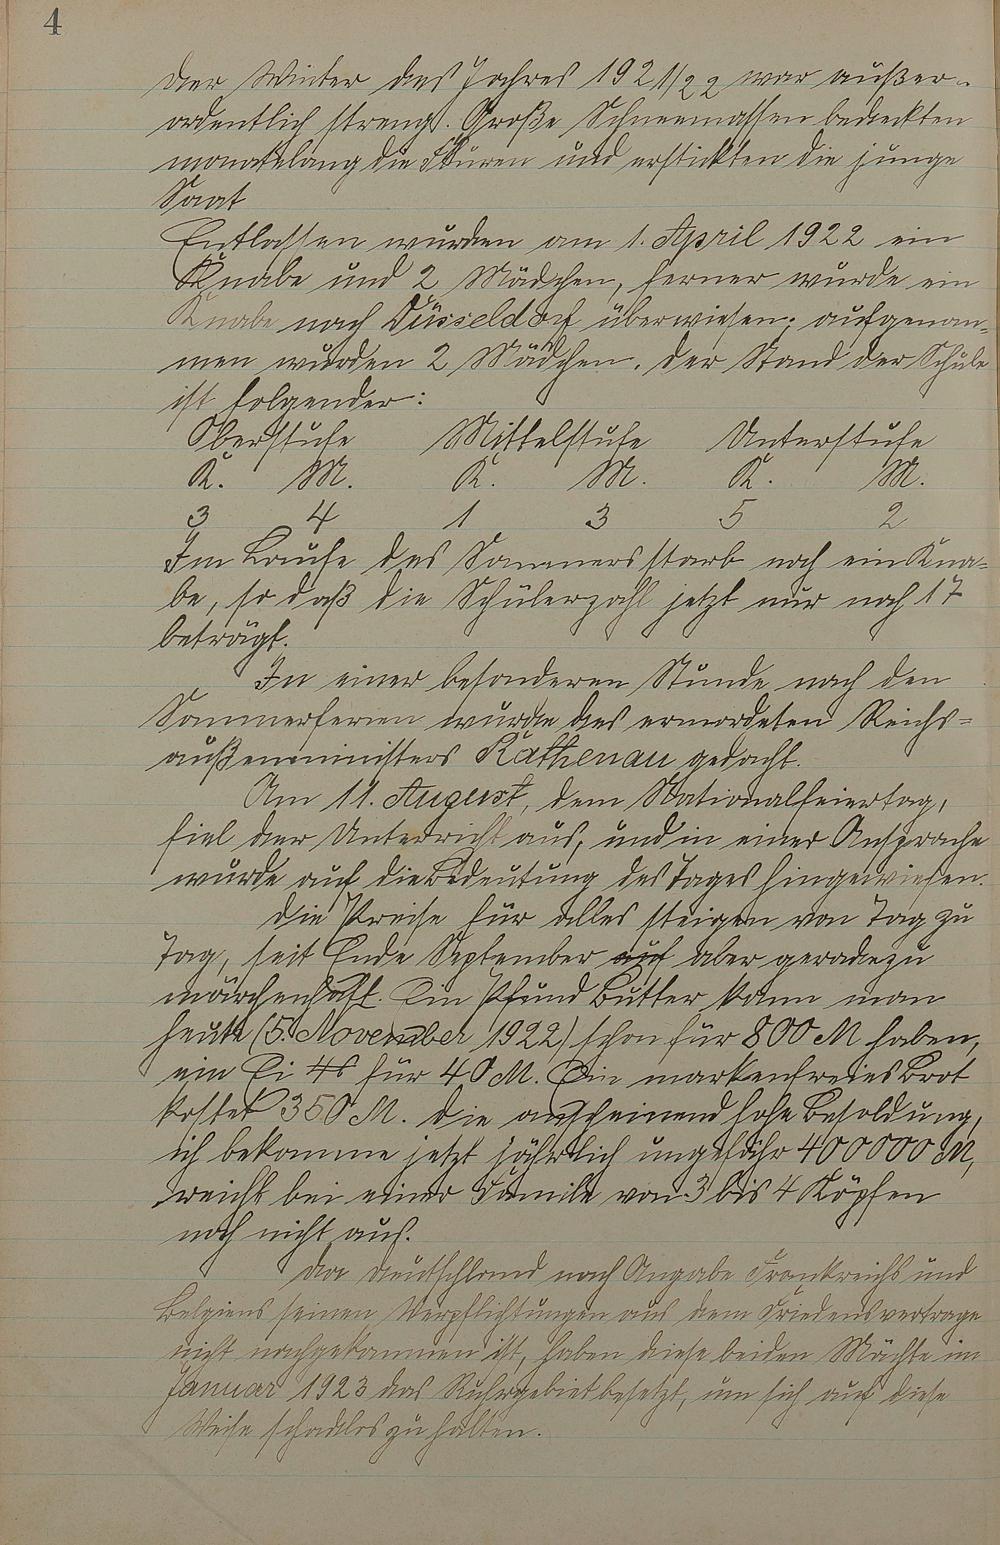 4
Der Winter des Jahres 1921/22 war außer-
ordentlich streng. Große Schneemassen bedeckten
monatelang die Fluren und erstickten die junge
Saat
Entlassen wurden am 1. April 1922 ein
Knabe und 2 Mädchen, ferner wurde ein
Knabe nach Düsseldorf überwiesen; aufgenom-
men wurden 2 Mädchen. Der Stand der Schule
ist folgender:
Oberstufe Mittelstufe Unterstufe
K. M. K. M. K. M.
3 4 1 3 5 2
Im Laufe des Sommers starb noch ein Kna-
be, so daß die Schülerzahl jetzt nur noch 17
beträgt.
In einer besonderen Stunde nach den
Sommerferien wurde des ermordeten Reichs-
außenministers Rathenau gedacht.
Am 11. August, dem Nationalfeiertag,
fiel der Unterricht aus, und in einer Ansprache
wurde auf die Bedeutung des Tages hingewiesen.
Die Preise für alles steigen von Tag zu
Tag, seit Ende September auf aber geradezu
märchenhaft. Ein Pfund Butter kann man
heute (5. November 1922) schon für 800 M haben,
ein Ei für 40 M. Ein markenfreies Brot
kostet 350 M. Die anscheinend hohe Besoldung,
ich bekomme jetzt jährlich ungefähr 400000 M,
reicht bei einer Familie von 3 bis 4 Köpfen
noch nicht aus.
Da Deutschland nach Angabe Frankreichs und
Belgiens seinen Verpflichtungen aus dem Friedensvertrage
nicht nachgekommen ist, haben diese beiden Mächte im
Januar 1923 das Ruhrgebiet besetzt, um sich auf diese
Weise schadlos zu halten.